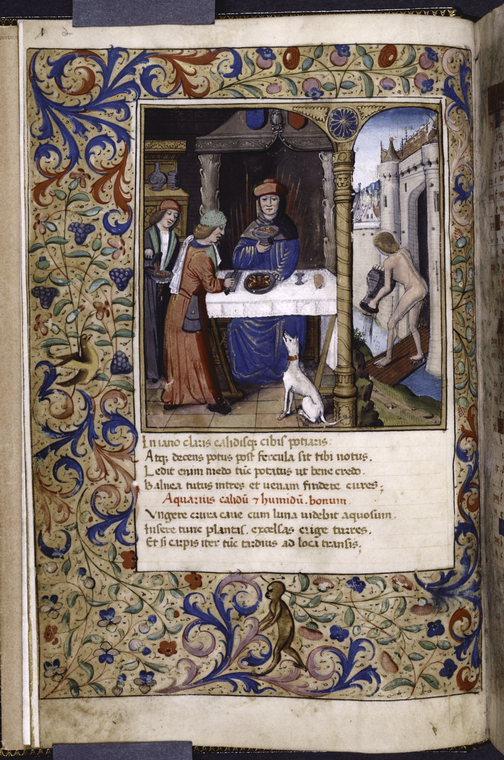 In iano claris calidisq; cibis potiaris:
Atq; decens potus post fercula sit tibi notus.
Ledit enim medo tūc potatus ut bene credo.
Balnea tutus intres et uenam findere cures:
Aquarius calidū ⁊ humidū. bonum
Vngere crura caue cum luna uidebit aquosum.
Insere tunc plantas. excelsas erige turres.
Et si carpis iter tūc tardius ad loca transis.